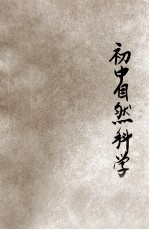 初中自然科学